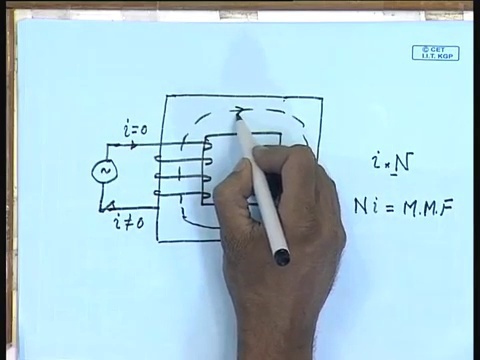 © CET
I.I.T. KGP
i=0
i × N
Ni = M.M.F
i≠0